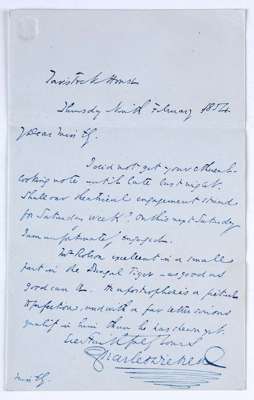 Tavistock House
Thursday Ninth February 1854.
My Dear Miss
I did not get your
looking note until late last night.
Shall our theatrical engagement stand
for Saturday Week? On this next Saturday
I am unfortunately engaged.
Mr. Robson excellent in a small
part in the Bengal Tiger – as good as
good can be. apostrophe is a
of perfections, and with a far better comic
quality in him than he has shewn yet.
Ever Faithfully Yours
Charles Dickens
Miss